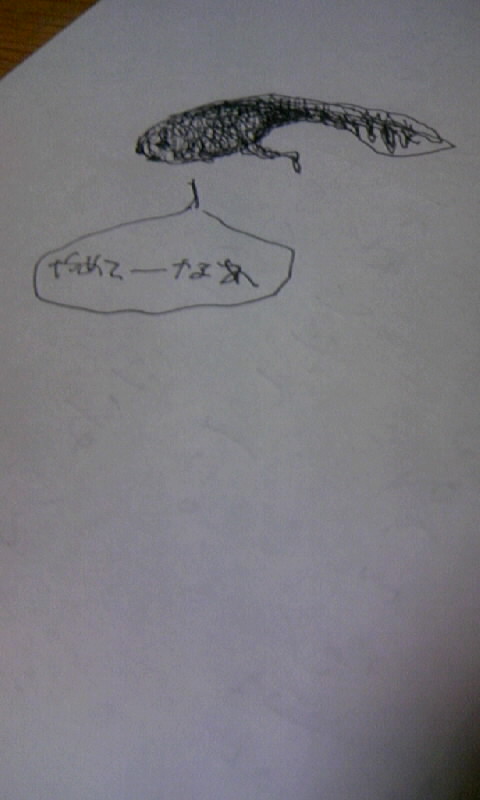 やめてーなぁ